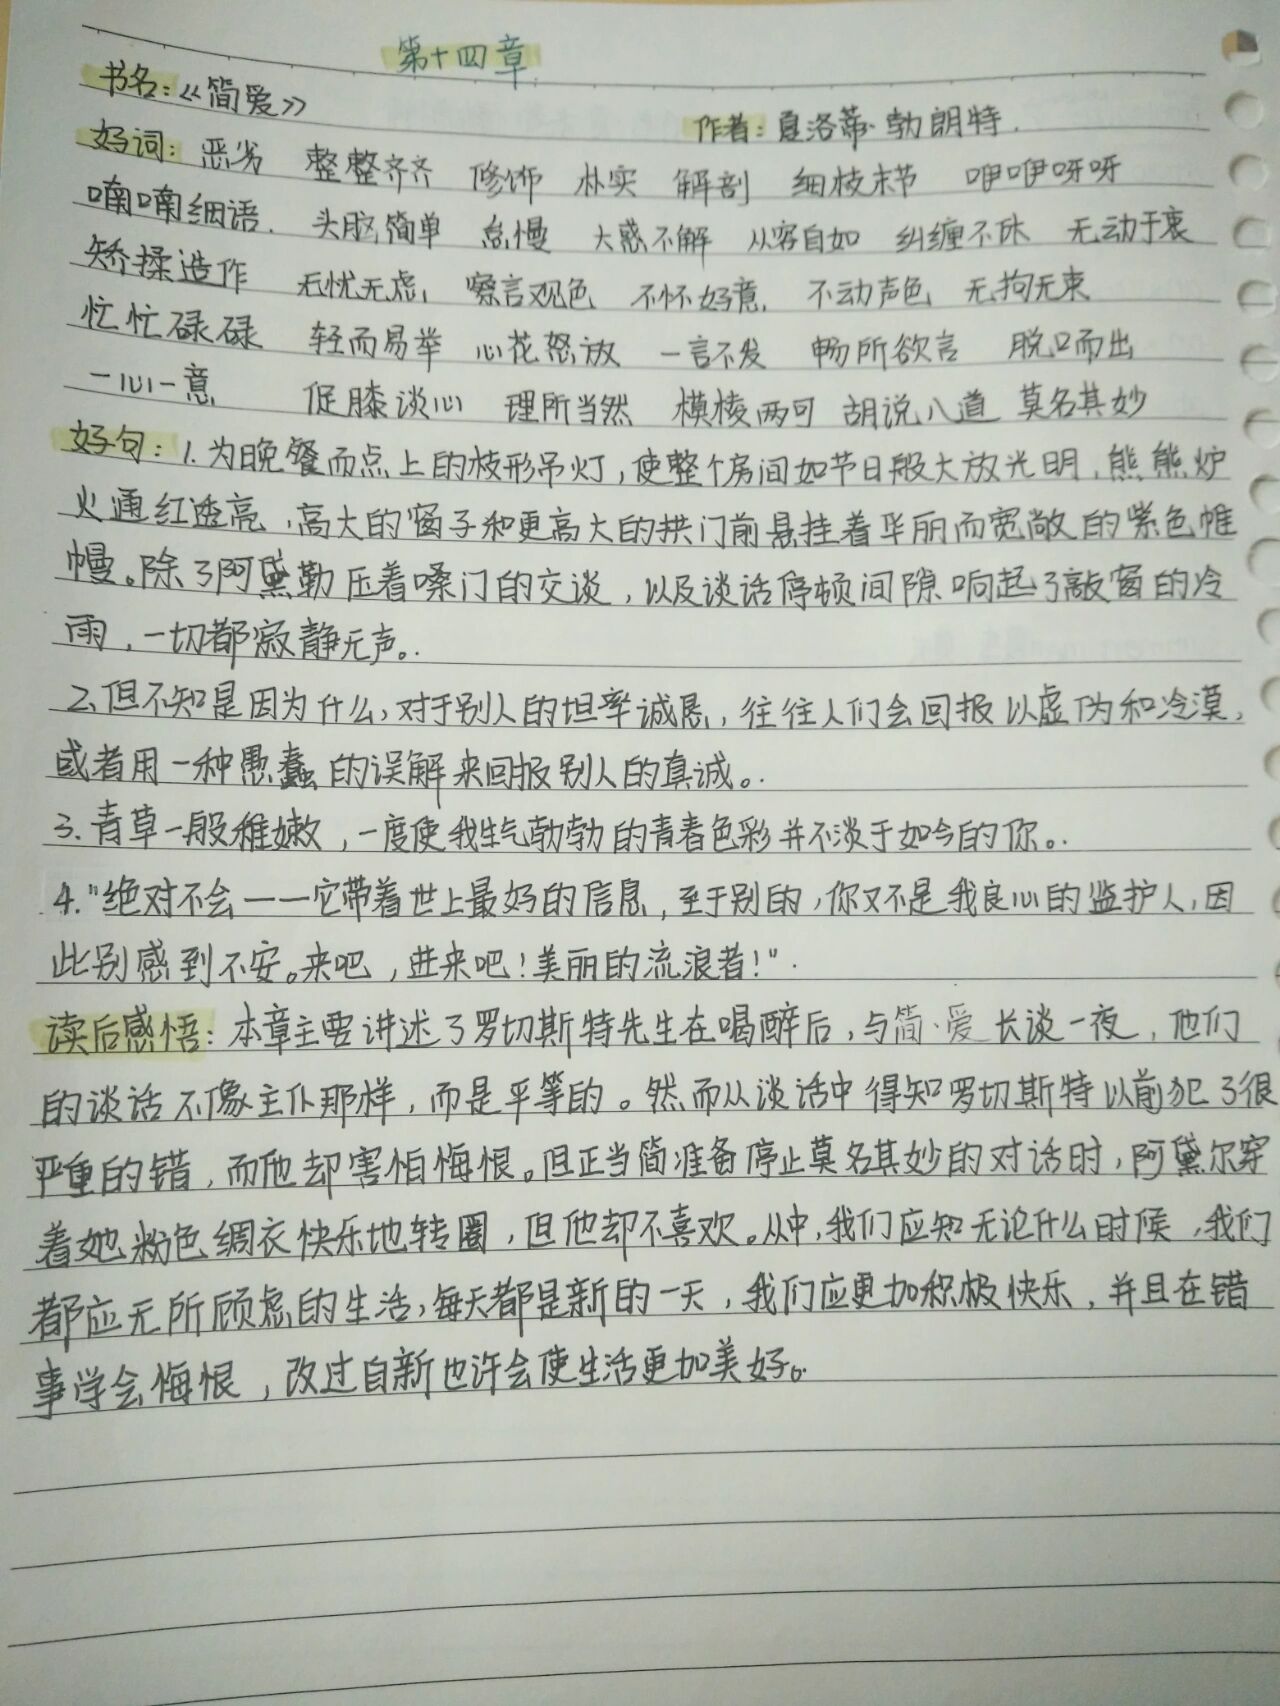 第十四章
书名:《简爱》
作者:夏洛蒂·勃朗特.
好词:恶劣 整整齐齐 修饰 朴实 解剖 细枝末节 咿咿呀呀
喃喃细语. 头脑简单 怠慢 大惑不解 从容自如 纠缠不休 无动于衷
矫揉造作 无忧无虑 察言观色 不怀好意 不动声色 无拘无束
忙忙碌碌 轻而易举 心花怒放 一言不发 畅所欲言 脱口而出
一心一意 促膝谈心 理所当然 模棱两可 胡说八道 莫名其妙
好句:1.为晚餐而点上的枝形吊灯,使整个房间如节日般大放光明,熊熊炉
火通红透亮,高大的窗子和更高大的拱门前悬挂着华丽而宽敞的紫色帷
幔。除了阿黛勒压着嗓门的交谈,以及谈话停顿间隙响起了敲窗的冷
雨,一切都寂静无声。
2.但不知是因为什么,对于别人的坦率诚恳,往往人们会回报以虚伪和冷漠,
或者用一种愚蠢的误解来回报别人的真诚。
3.青草一般稚嫩,一度使我生气勃勃的青春色彩并不淡于如今的你。
4."绝对不会——它带着世上最好的信息,至于别的,你又不是我良心的监护人,因
此别感到不安。来吧,进来吧!美丽的流浪者!"
读后感悟:本章主要讲述了罗切斯特先生在喝醉后,与简·爱长谈一夜,他们
的谈话不像主仆那样,而是平等的。然而从谈话中得知罗切斯特以前犯了很
严重的错,而他却害怕悔恨。但正当简准备停止莫名其妙的对话时,阿黛尔穿
着她粉色绸衣快乐地转圈,但他却不喜欢。从中,我们应知无论什么时候,我们
都应无所顾虑的生活,每天都是新的一天,我们应更加积极快乐,并且在错
事学会悔恨,改过自新也许会使生活更加美好。